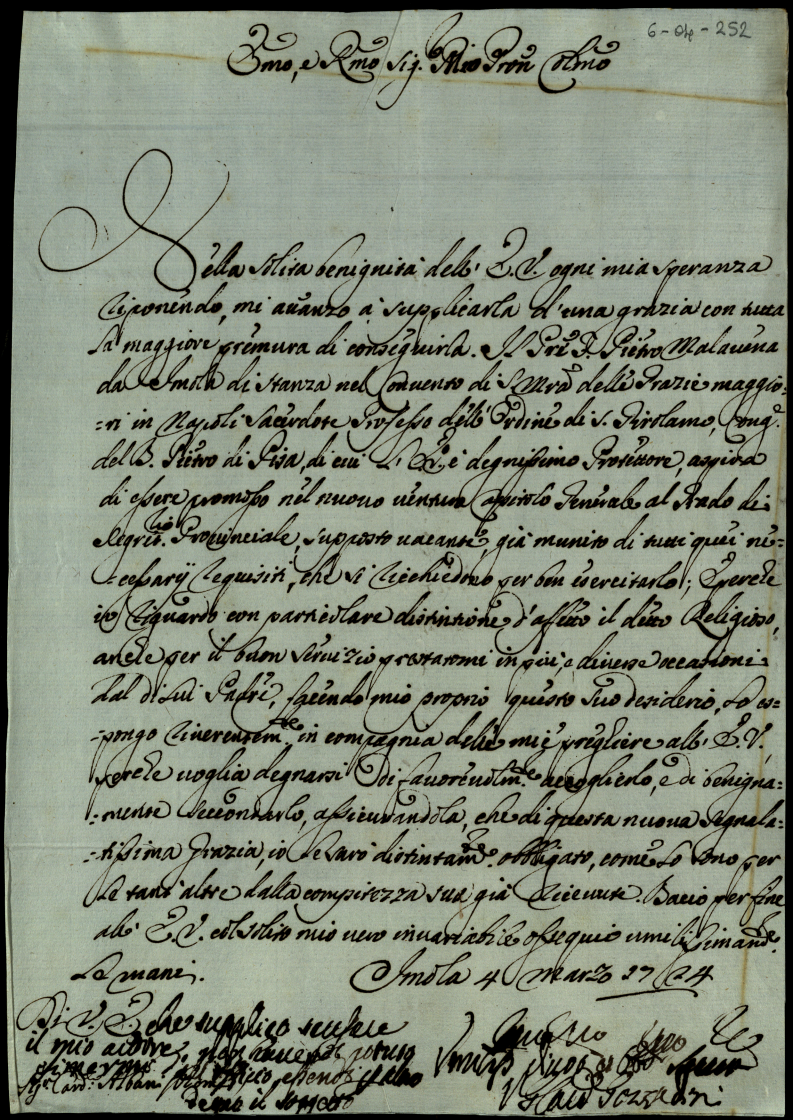 6-04-252
Emo, e Rmo Sig.r Mio Pron Colmo
Nella solita benignità dell' E. V. ogni mia speranza
riponendo, mi avanzo à supplicarla d'una grazia con tutta
la maggiore premura di conseguirla. Il Pre F. Pietro Malavena
da Imola di stanza nel Convento di S. Mra delle Grazie maggio=
=ri in Napoli Sacerdote Professo dell' Ordine di S. Girolamo, Cong.
del B. Pietro di Pisa, di cui L' E. V. è degnissimo Protettore, aspira
di essere promosso nel nuovo venturo Capitolo Generale al Grado di
Segrio. Provinciale, supposto vacante, già munito di tutti quei ne=
=cessarij requisiti, che si richiedono per ben esercitarlo; E perche
io riguardo con particolare distinzione d'affetto il detto Religioso,
anche per il buon servizio prestatomi in più, e diverse occasioni
dal di lui Padre, facendo mio proprio questo suo desiderio, Lo es=
=pongo riverentem.te in compagnia delle mie preghiere all' E. V.,
perche voglia degnarsi di favorevolm.te accoglierlo, e di benigna=
=mente secondarlo, assicurandola, che di questa nuova segnala=
=tissima grazia, io Le sarò distintam.te obbligato, come Lo sono per
Le tant' altre dalla compitezza sua già ricevute. Bacio per fine
all' E. V. col solito mio vero invariabile ossequio umilissimam.te
Le mani. Imola 4 Marzo 1724
Di V. E. che supplico scusare
il mio ardire, non havendo potuto
Sig.r Card. Albani